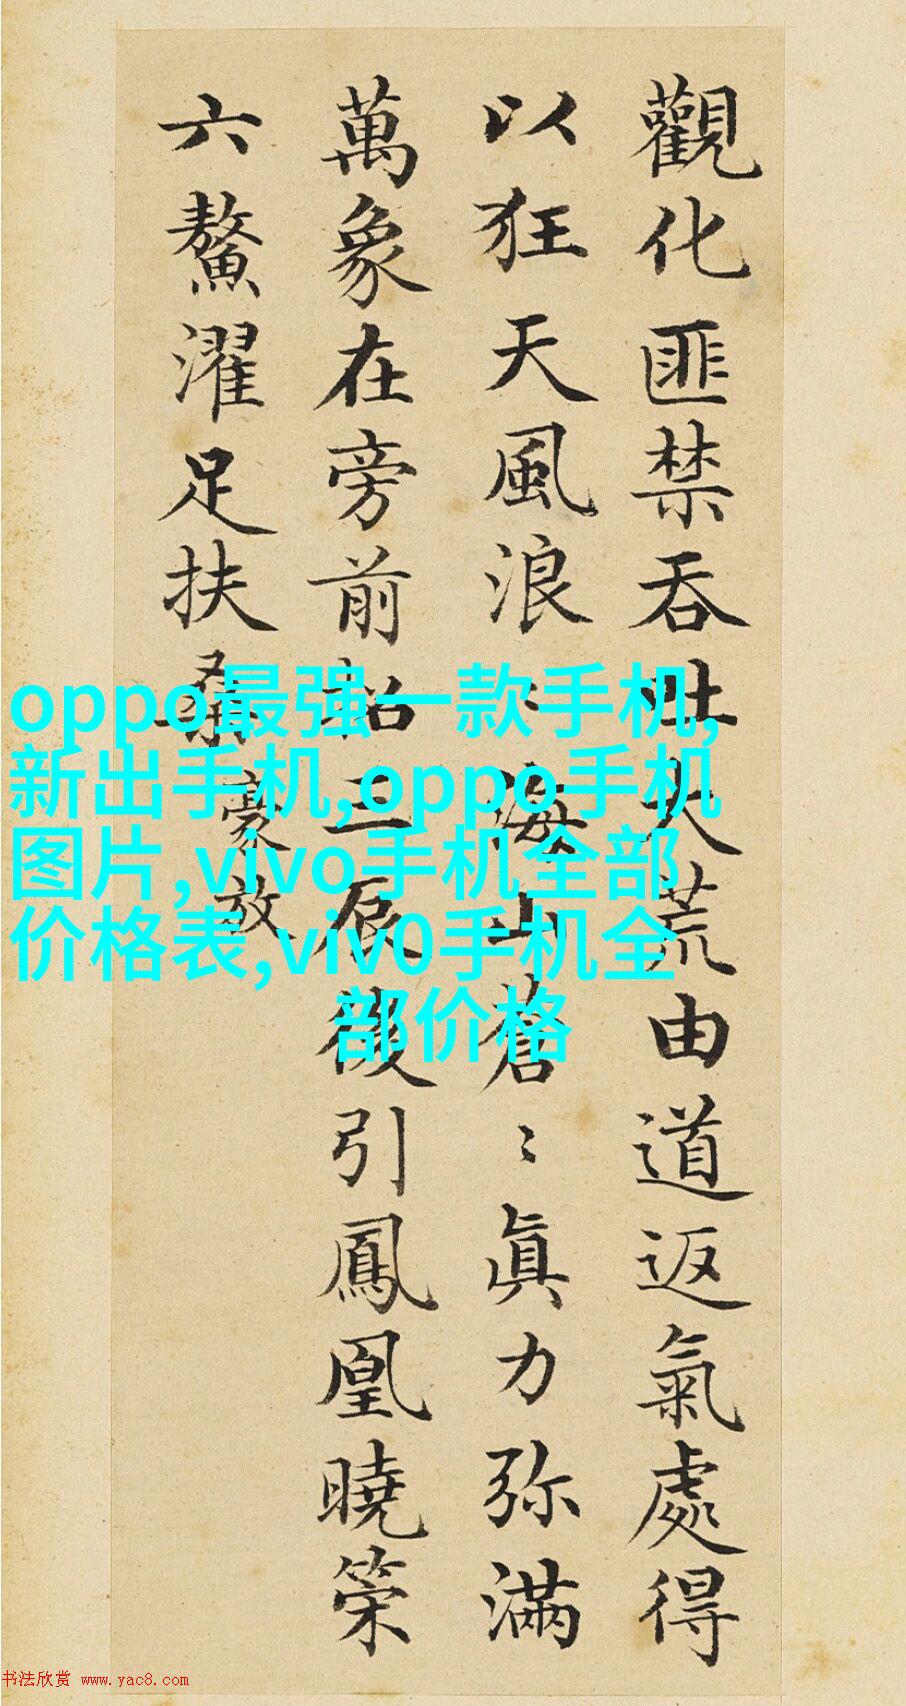 觀化匪禁吞吐大荒由道返氣處得
以狂天風浪〻海山蒼〻眞力弥滿
萬象在旁前招三辰後引鳳凰曉策
六鰲濯足扶桑
豪放
oppo最强一款手机,
新出手机,oppo手机
图片,vivo手机全部
价格表,viv0手机全
部价格
书法欣赏 www.yac8.com